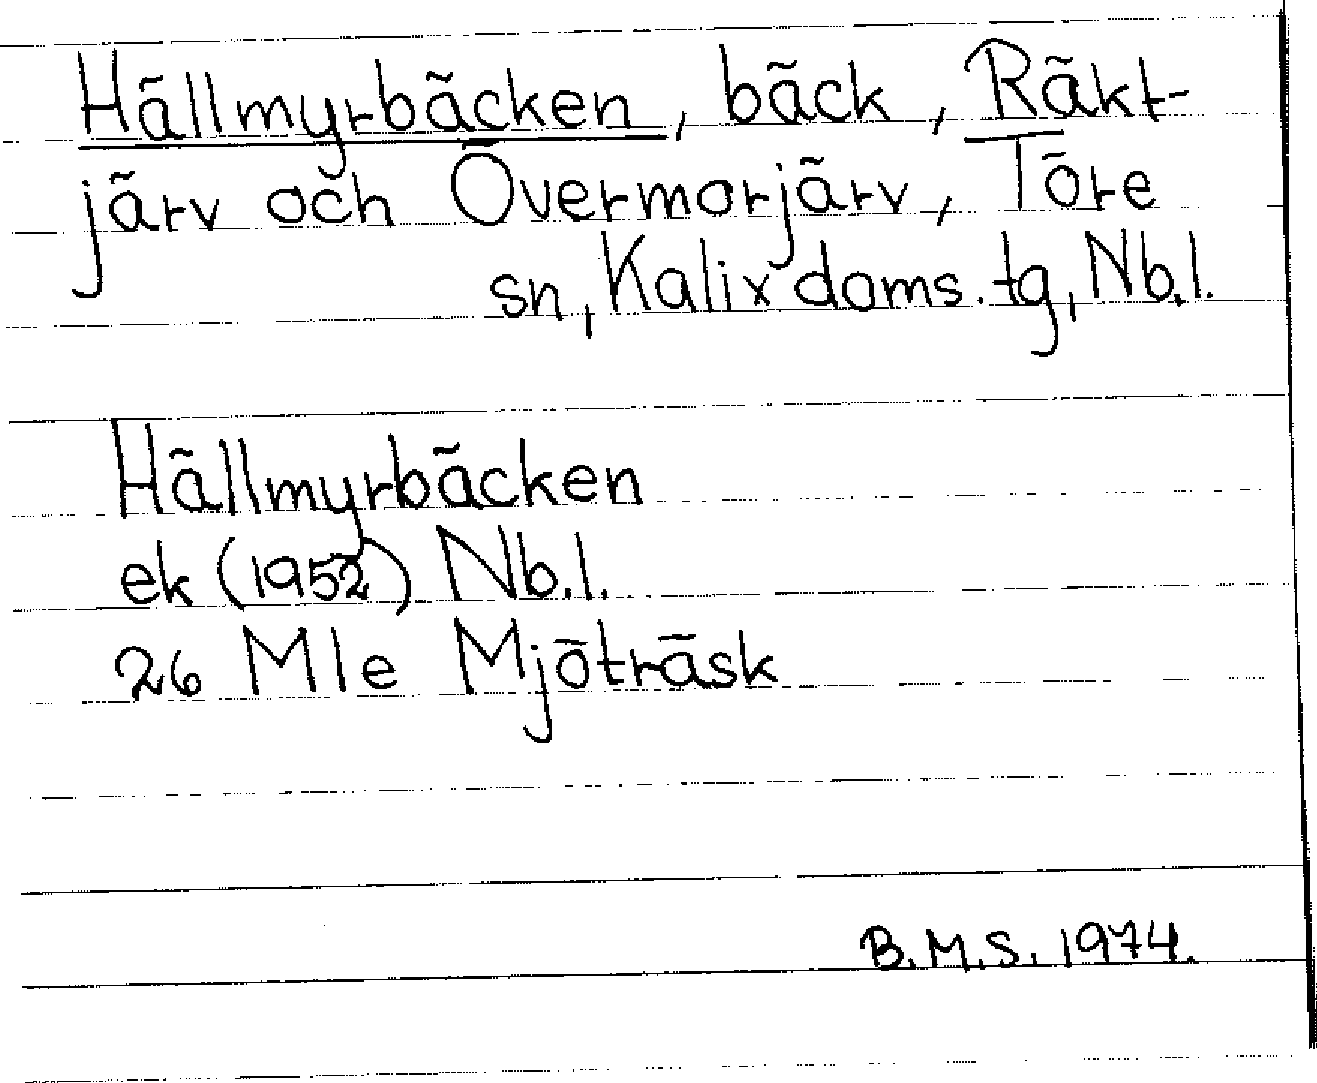 Hällmyrbäcken, bäck, Räkt-
järv och Övermorjärv, Töre
sn, Kalix doms. tg, Nb.l.
Hällmyrbäcken
ek (1952) Nb.l.
26 Mle Mjöträsk
B.M.S. 1974.